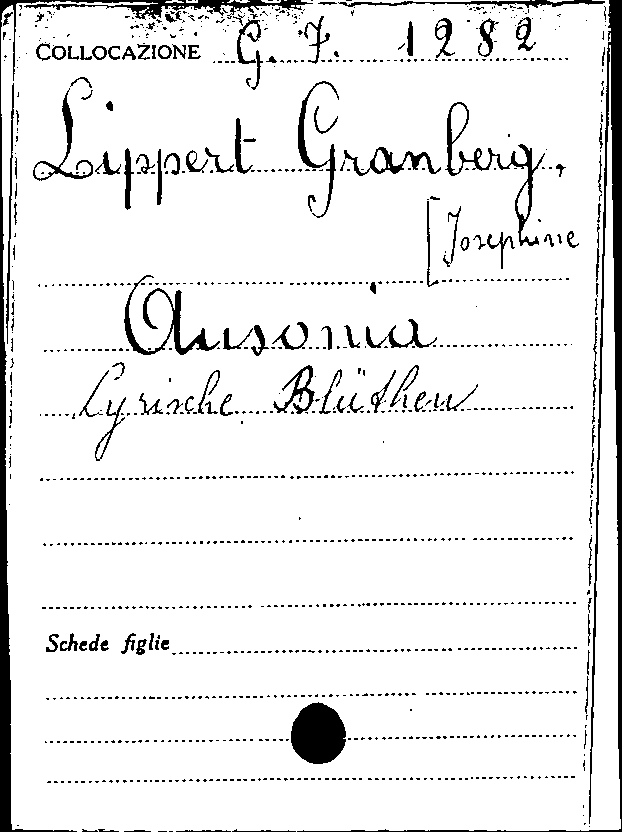 COLLOCAZIONE G. 7. 1282
Lippert Granberg,
[Josephine
Ausonia
Lyrische Blüthen
Schede figlie